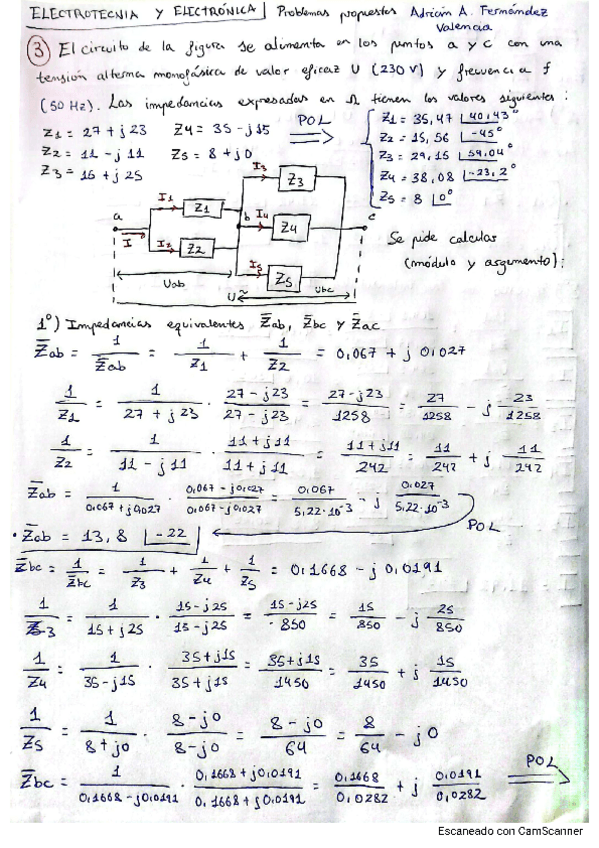 ELECTROTECNIA Y ELECTRÓNICA | Problemas propuestos Adrián A. Fernández Valencia
③ El circuito de la figura se alimenta en los puntos a y c con una
tensión alterna monofásica de valor eficaz U (230 V) y frecuencia f
(50 Hz). Las impedancias expresadas en Ω tienen los valores siguientes:
Z1 = 27 + j23 Z4 = 35 - j15 POL ⟹
Z2 = 11 - j11 Z5 = 8 + j0
Z3 = 15 + j25
Z1 = 35,47 |40,43°
Z2 = 15,56 |-45°
Z3 = 29,15 |59,04°
Z4 = 38,08 |-23,2°
Z5 = 8 |0°
a I I1 Z1 I2 Z2 b I3 Z3 I4 Z4 I5 Z5 c
Uab Ubc
U ~
Se pide calcular
(módulo y argumento):
1º) Impedancias equivalentes Z̄ab, Z̄bc y Z̄ac
Z̄ab = 1/Z̄ab = 1/Z1 + 1/Z2 = 0,067 + j 0,027
1/Z1 = 1/(27 + j23) · (27 - j23)/(27 - j23) = (27 - j23)/1258 = 27/1258 - j 23/1258
1/Z2 = 1/(11 - j11) · (11 + j11)/(11 + j11) = (11 + j11)/242 = 11/242 + j 11/242
Z̄ab = 1/(0,067 + j0,027) · (0,067 - j0,027)/(0,067 - j0,027) = 0,067/5,22·10⁻³ - j 0,027/5,22·10⁻³
POL
· Z̄ab = 13,8 |-22
Z̄bc = 1/Z̄bc = 1/Z3 + 1/Z4 + 1/Z5 = 0,1668 - j 0,0191
1/Z3 = 1/(15 + j25) · (15 - j25)/(15 - j25) = (15 - j25)/850 = 15/850 - j 25/850
1/Z4 = 1/(35 - j15) · (35 + j15)/(35 + j15) = (35 + j15)/1450 = 35/1450 + j 15/1450
1/Z5 = 1/(8 + j0) · (8 - j0)/(8 - j0) = (8 - j0)/64 = 8/64 - j0
Z̄bc = 1/(0,1668 - j0,0191) · (0,1668 + j0,0191)/(0,1668 + j0,0191) = 0,1668/0,0282 + j 0,0191/0,0282 POL ⟹
Escaneado con CamScanner